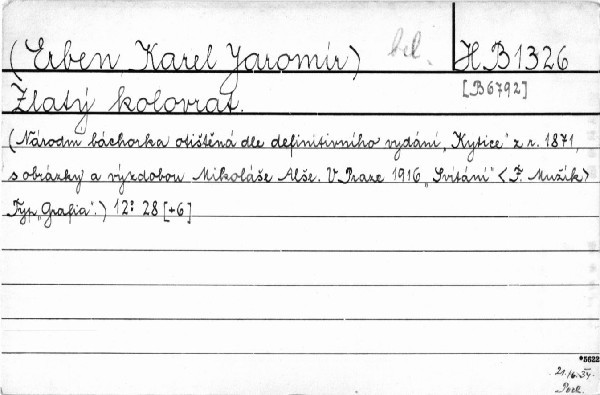 (Erben Karel Jaromír) bel. H B 1326
Zlatý kolovrat. [B6792]
(Národní báchorka otištěná dle definitivního vydání „Kytice" z r. 1871,
s obrázky a výzdobou Mikoláše Alše. V Praze 1916 „Svítání" <F. Mužík>
Typ. „Grafia".) 12° 28 [+6]
*5622